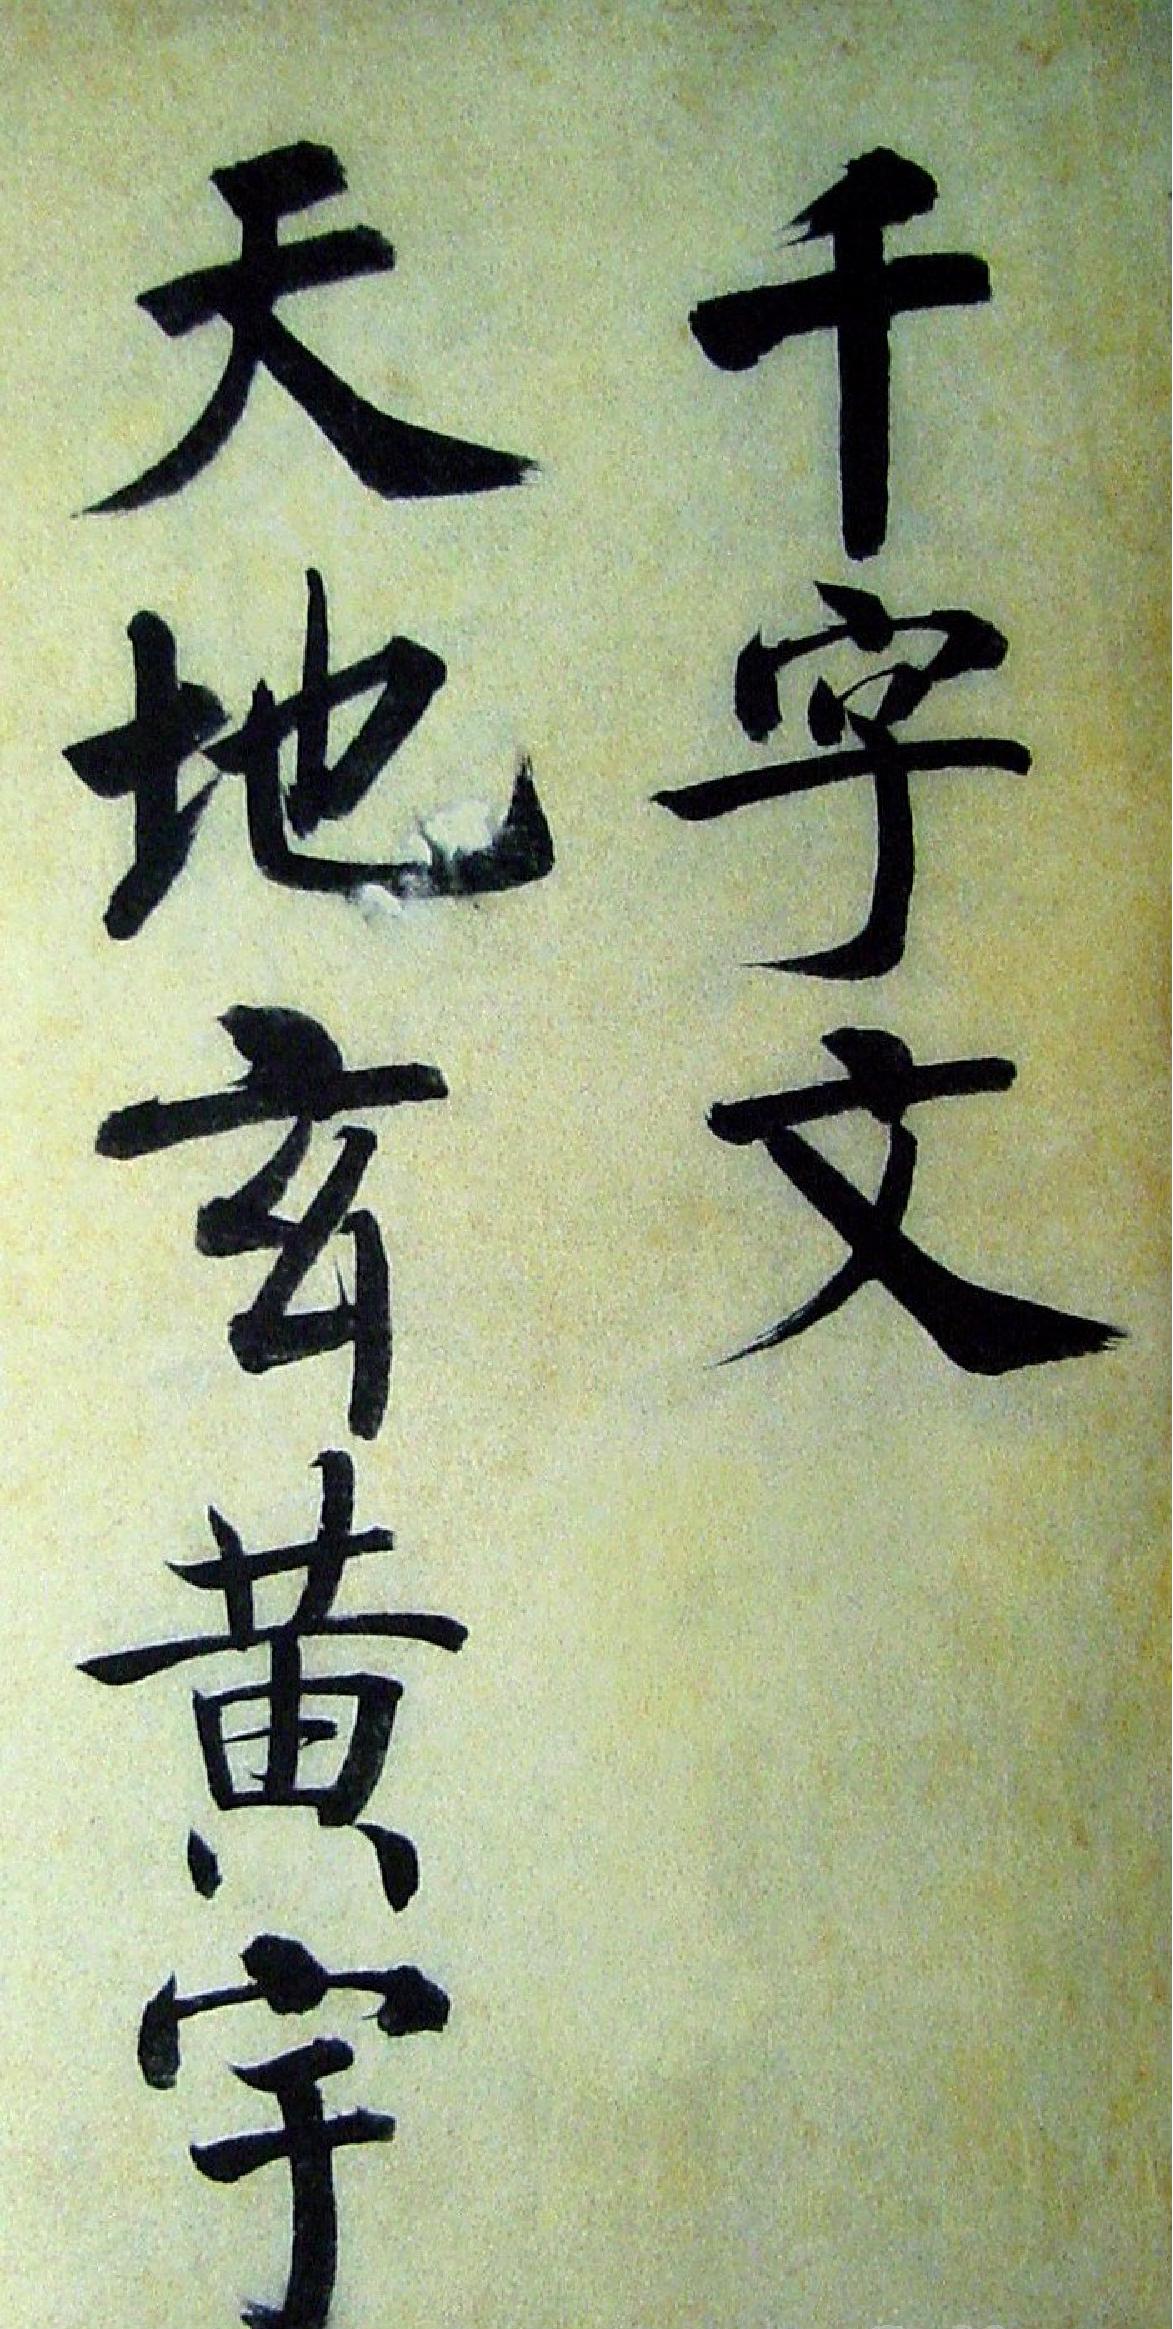 千字文
天地玄黄宇